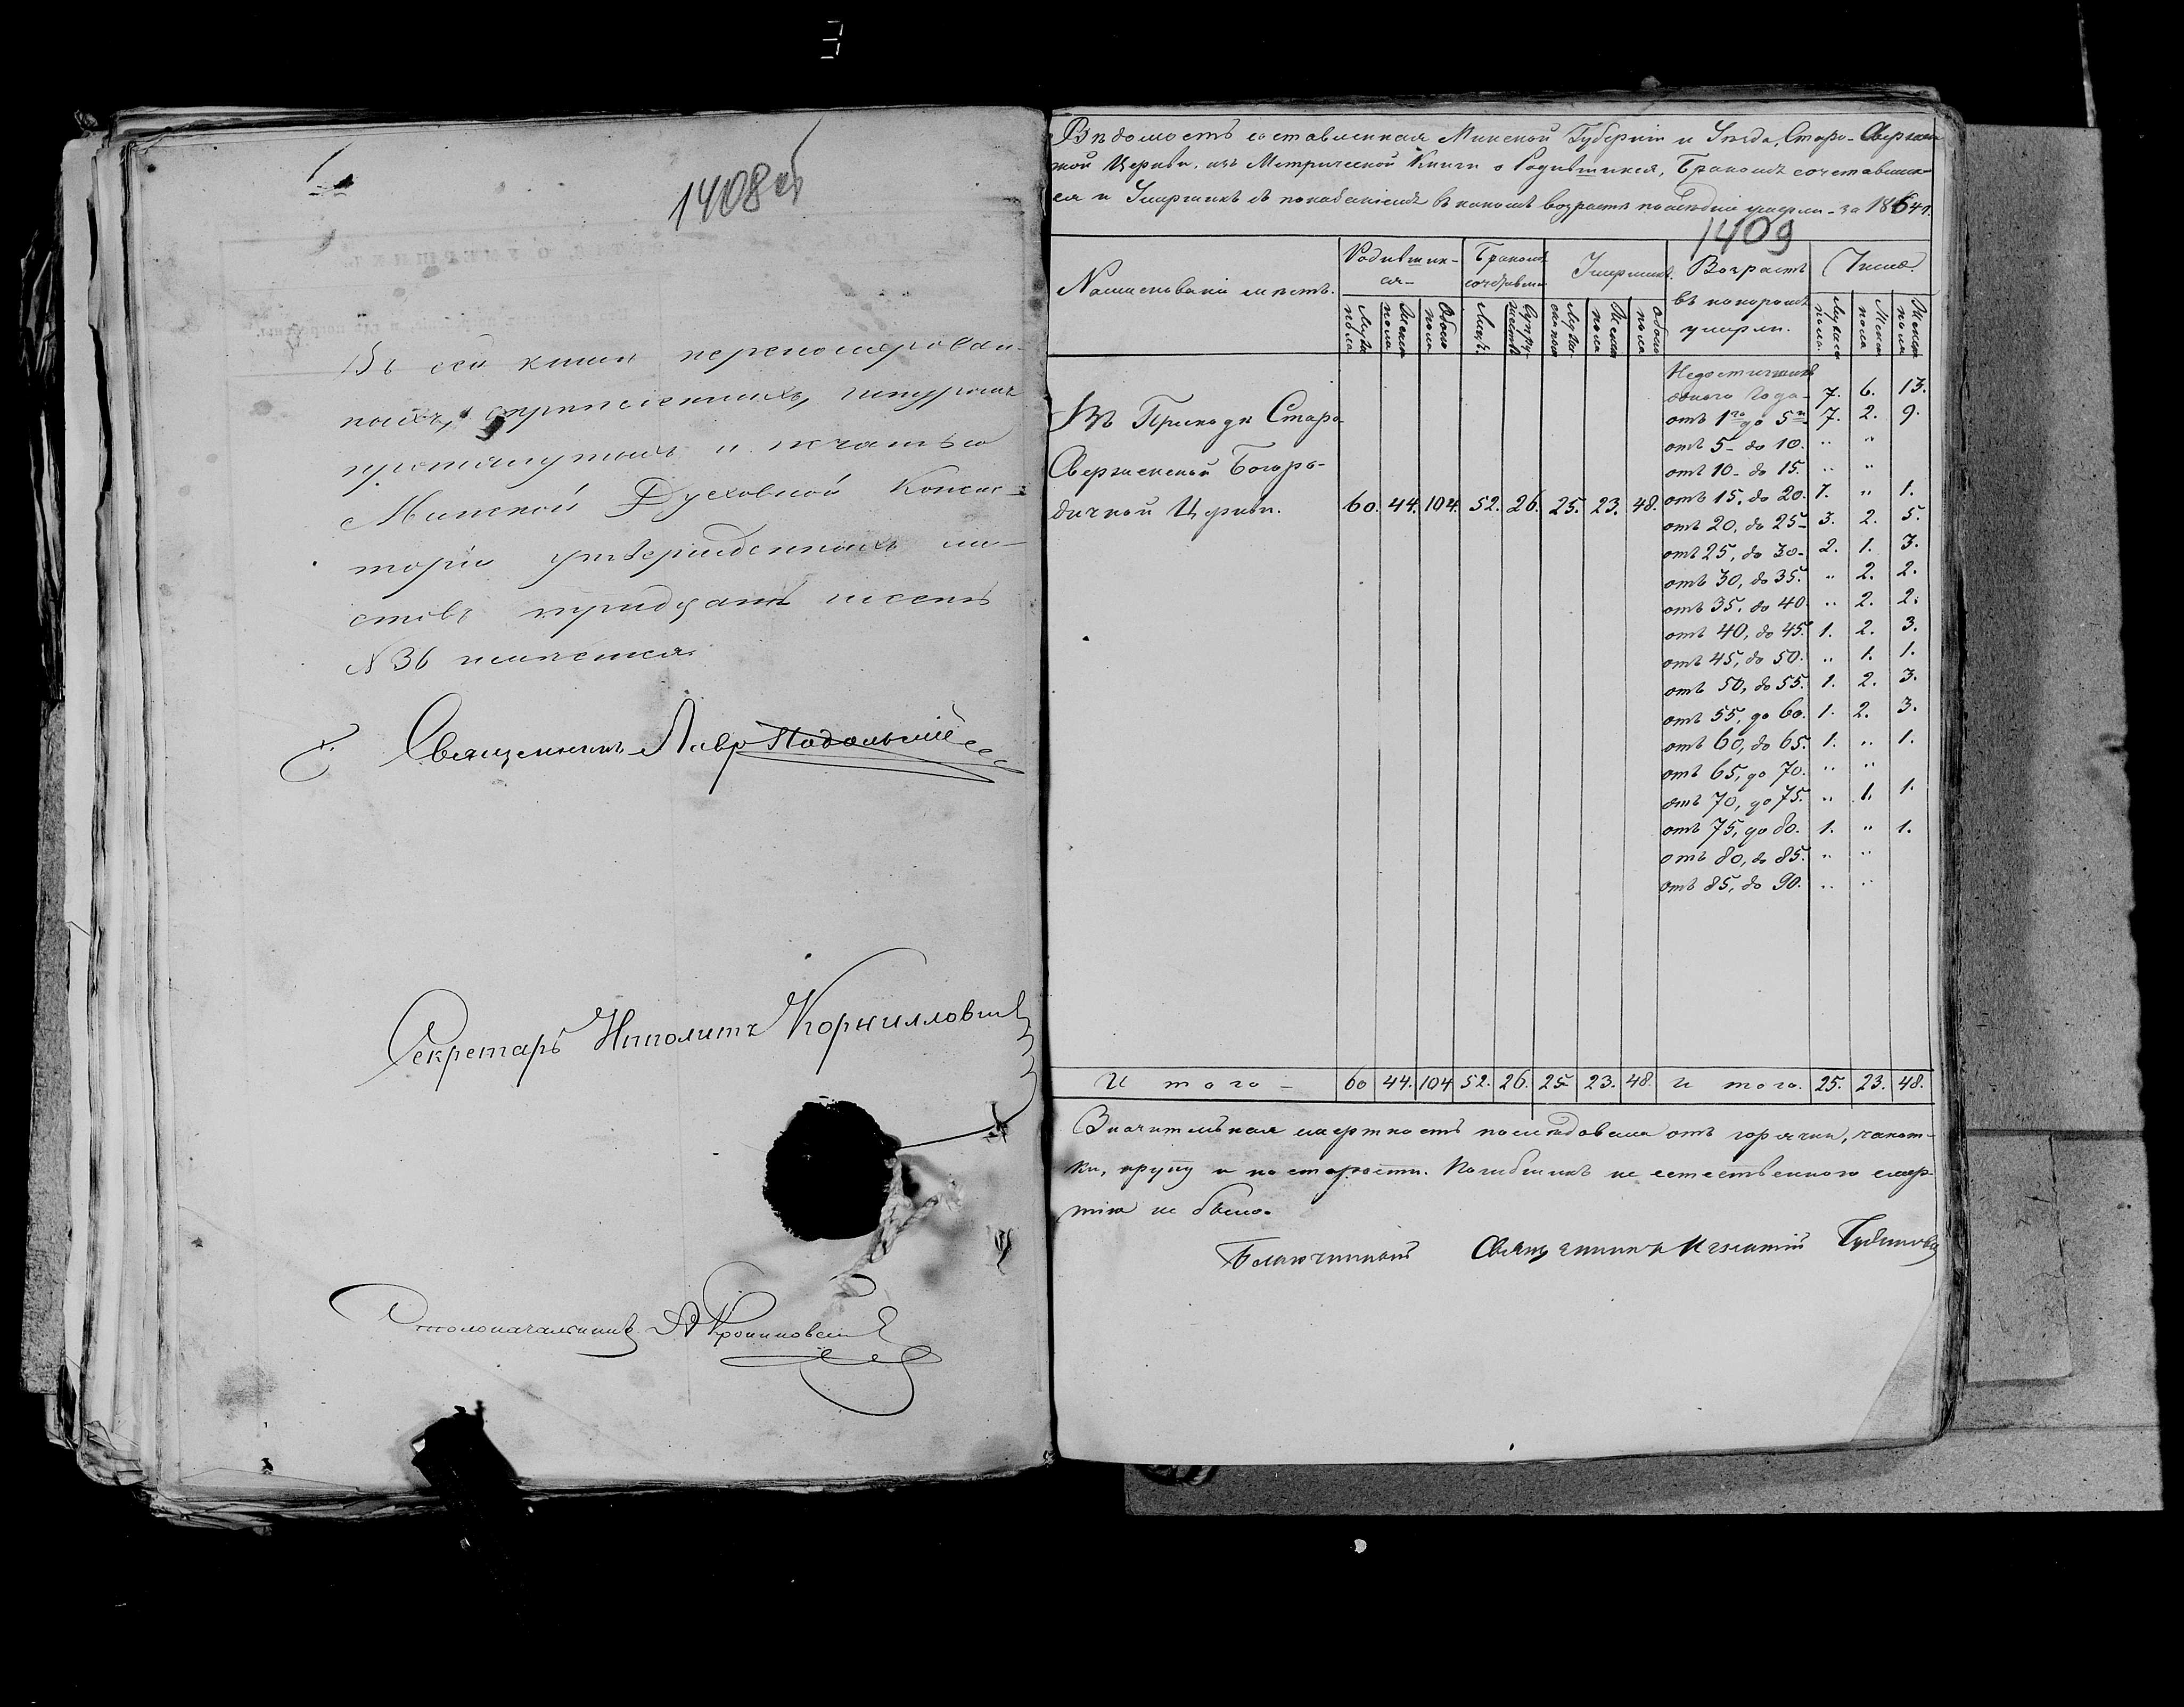 1408об
Въ сей книги перенумерован-
ныхъ, скрепленныхъ, шнуромъ
протянутыхъ и печатью
Минской Духовной Консис-
торіи утвержденныхъ ли-
стовъ тридцать шесть
№ 36 имѣется
Священникъ Лавр Подольскій
Секретарь Иполитъ Корнилловичъ
Столоначальникъ
Вѣдомость составленная Минской Губерніи и Уѣзда, Старо-Свержен-
ской Церкви, изъ Метрической Книги о Родившихся, Бракомъ сочетавших-
ся и Умершихъ съ показаніемъ въ какомъ возрастѣ послѣдніе умерли - за 1864 г.
1409
Наименованіе мѣстъ. Родивших-ся- Бракомъ Умершихъ. Возрастъ въ которомъ умерли. Число.
Муже пола Женск пола Обоего пола Лицъ. Супру-жествъ Женск пола Обоего пола
Недостигшихъ
одного Года- 7. 6. 13.
отъ 1го до 5ти 7. 2. 9.
отъ 5- до 10. " "
отъ 10- до 15. " "
отъ 15, до 20. 1. " 1.
отъ 20, до 25- 3. 2. 5.
отъ 25, до 30- 2. 1. 3.
отъ 30, до 35. " 2. 2.
отъ 35, до 40. " 2. 2.
отъ 40, до 45. 1. 2. 3.
отъ 45, до 50. " 1. 1.
отъ 50, до 55. 1. 2. 3.
отъ 55, до 60. 1. 2. 3.
отъ 60, до 65. 1. " 1.
отъ 65, до 70. " "
отъ 70, до 75. " 1. 1.
отъ 75, до 80. 1. " 1.
отъ 80, до 85. " "
отъ 85, до 90. " "
Въ Приходѣ Старо-
Сверженской Богоро-
дичной Церкви. 60. 44. 104. 52. 26. 25. 23. 48.
Итого - 60 44. 104 52. 26. 25 23. 48. Итого. 25. 23. 48.
Значительная смертность послѣдовала отъ горячки, чахот-
ки, крупу и по старости. Погибшихъ не естественною смер-
тію не было.
Благочинный Священникъ Игнатій